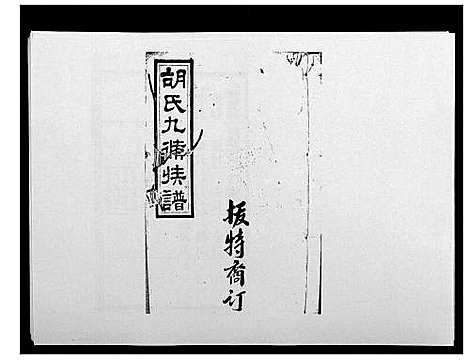 胡氏九修族譜
振特齋订